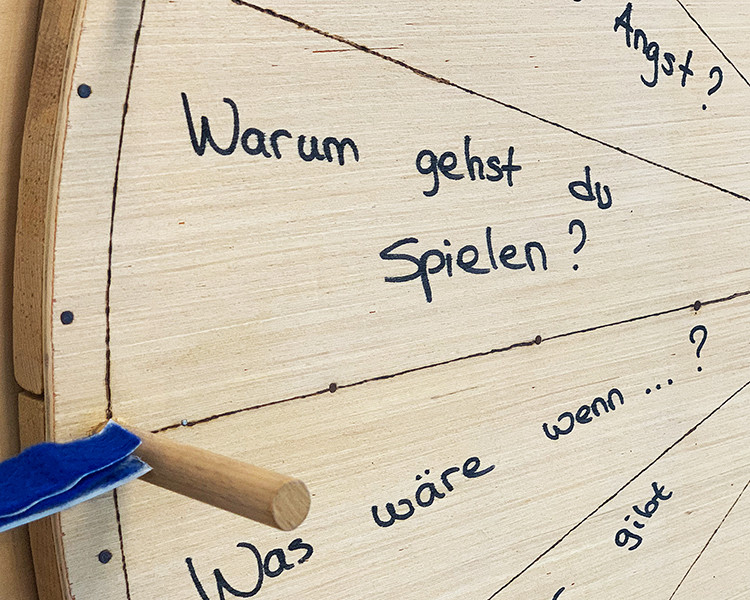 Angst?
Warum gehst du
Spielen?
Was wäre wenn...?
gibt